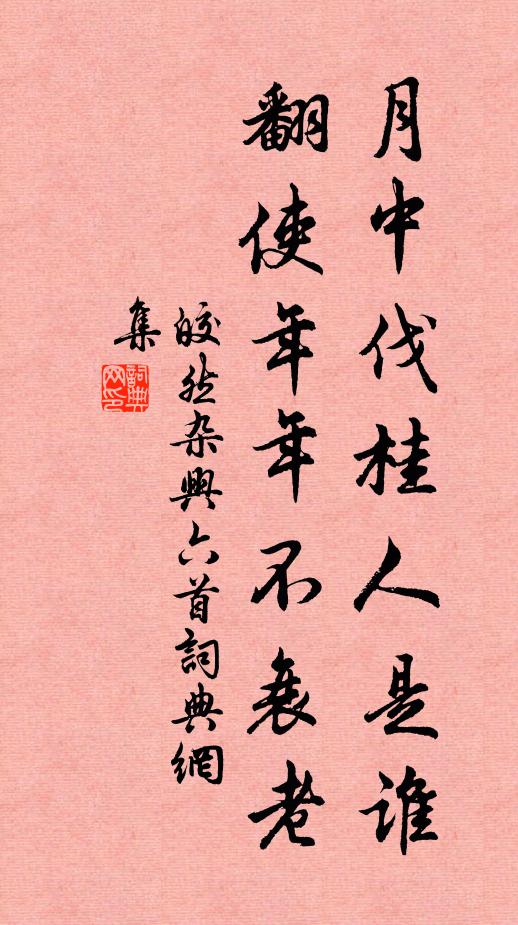 月中伐桂人是谁
翻使年年不衰老
皎然杂興六首詞典網
集
詞典
网印